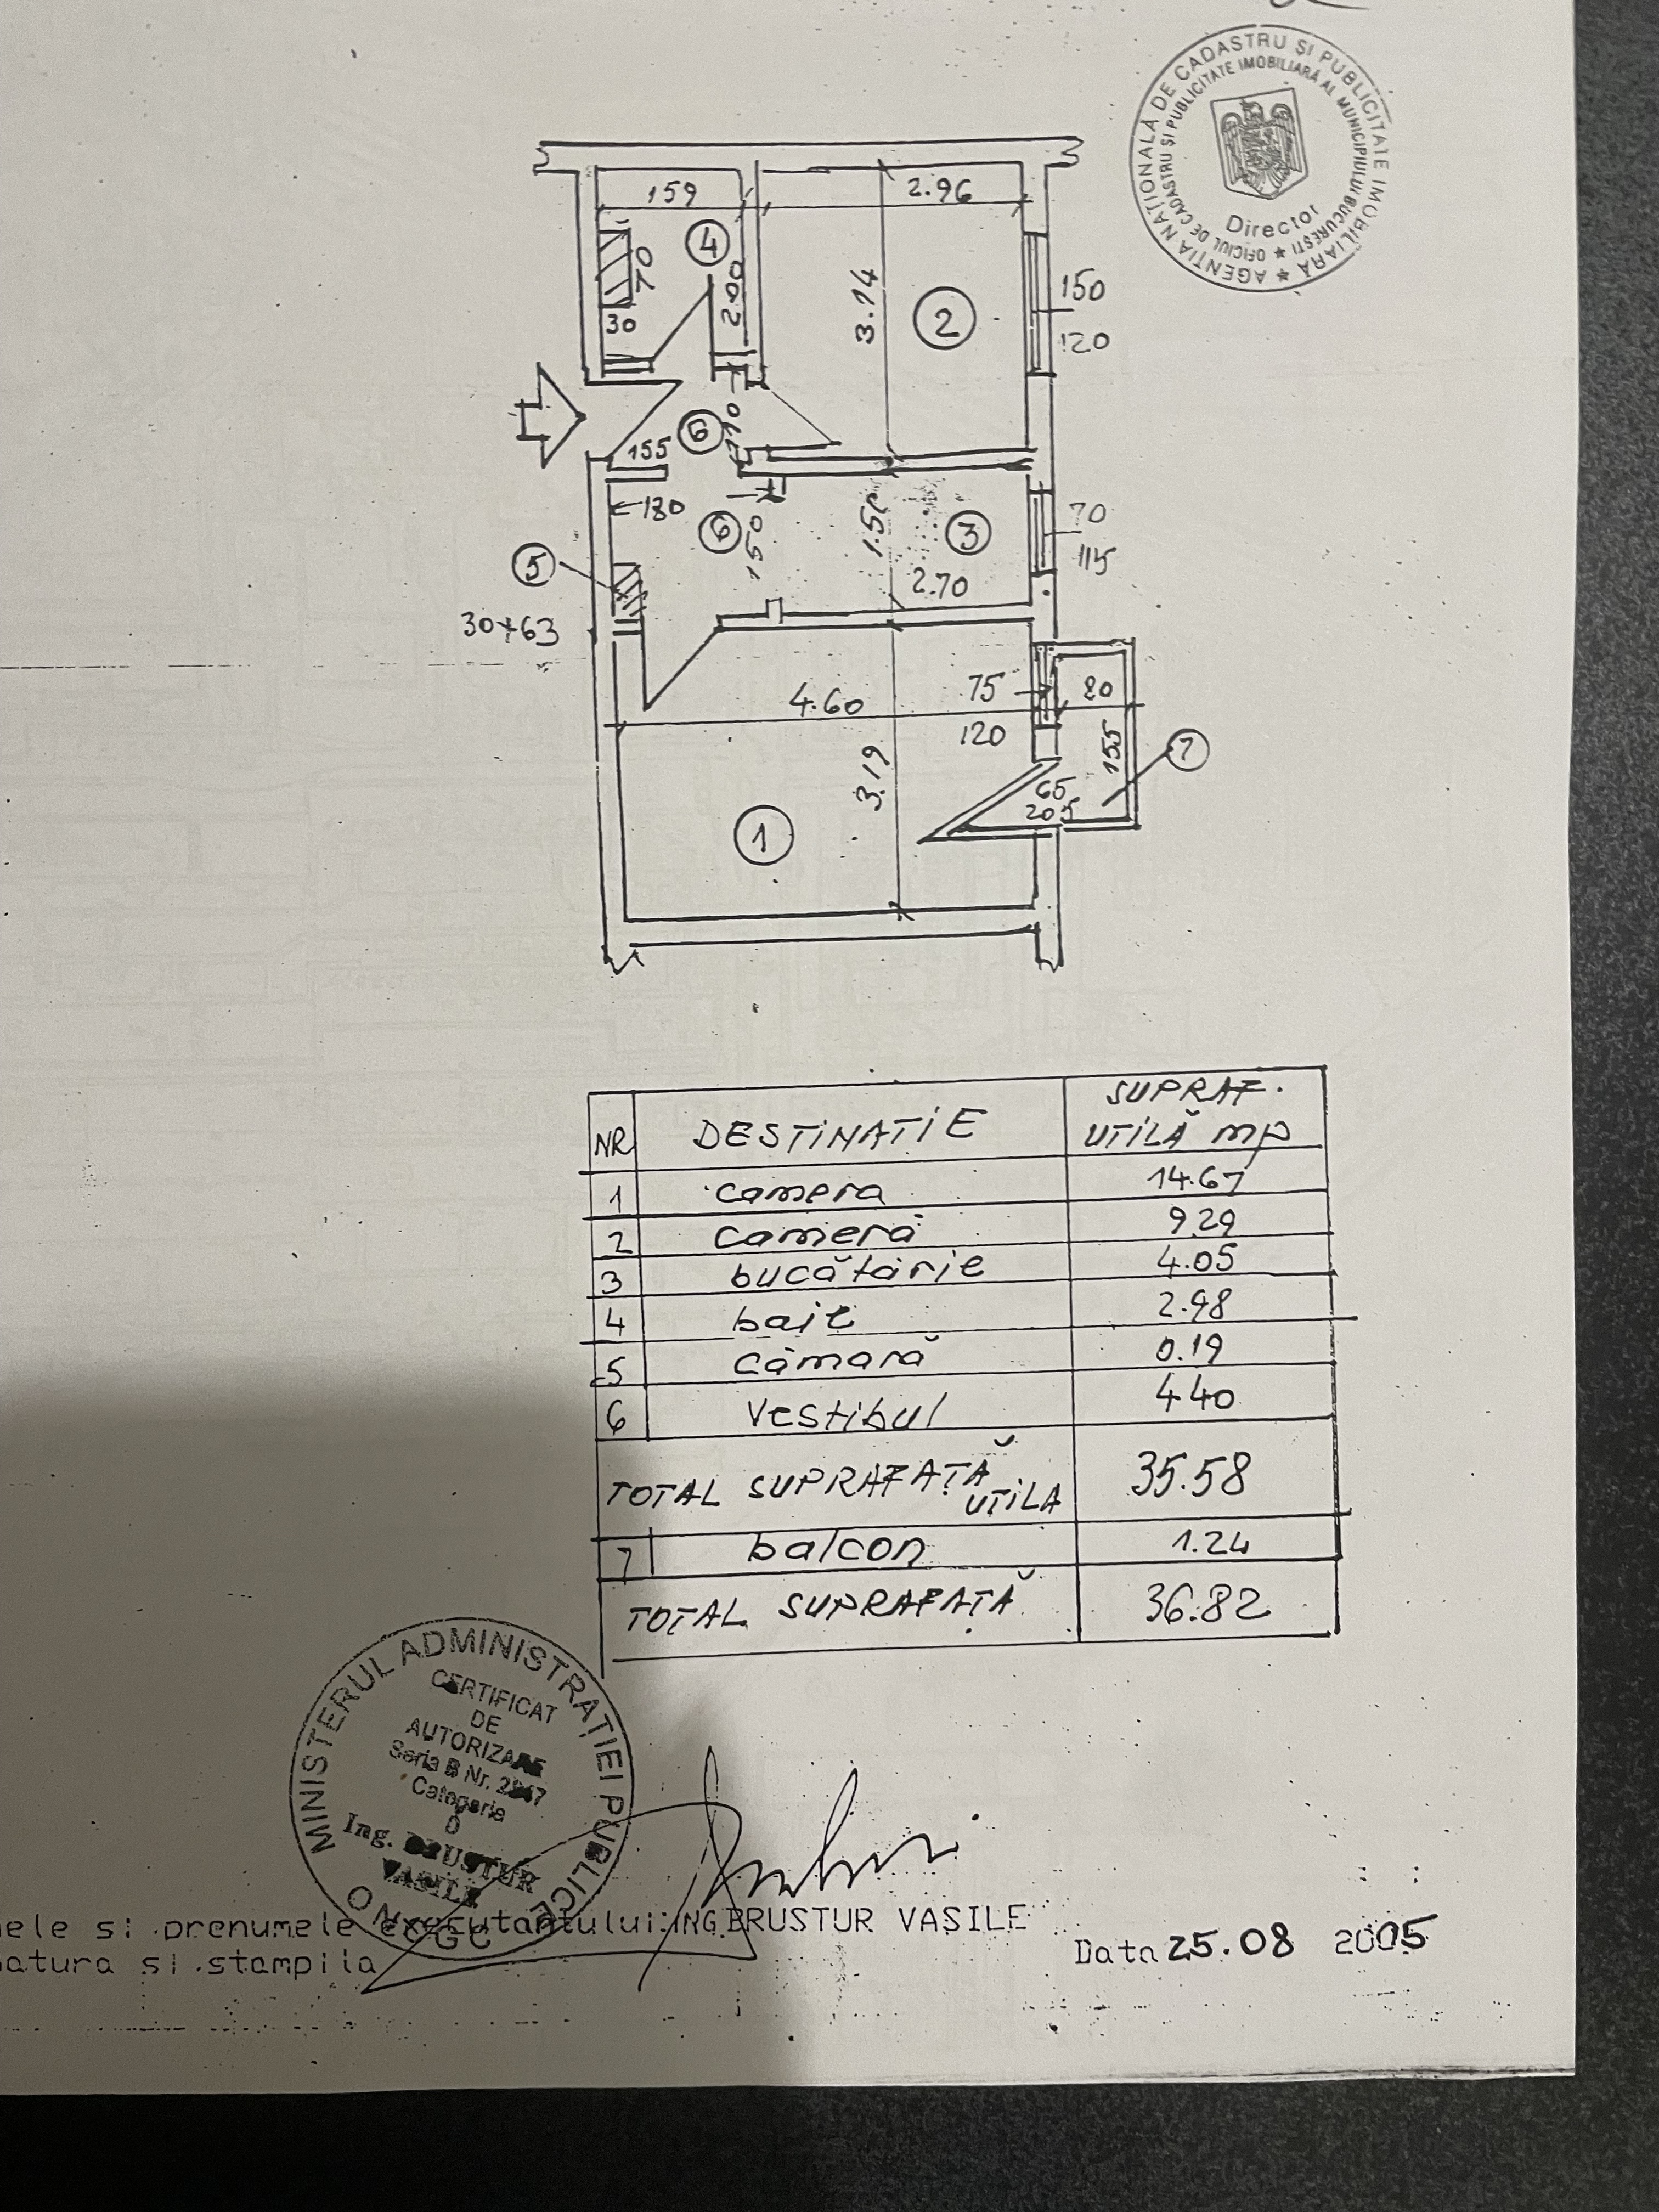 AGENȚIA NAȚIONALĂ DE CADASTRU ȘI PUBLICITATE IMOBILIARĂ ★
OFICIUL DE CADASTRU ȘI PUBLICITATE IMOBILIARĂ AL MUNICIPIULUI BUCUREȘTI ★
Director
159
2.96
4
70
2.00
30
3.14
2
150
120
6
110
155
180
6
150
1.50
3
2.70
70
115
5
30+63
4.60
75
120
80
155
7
3.19
65
205
1
NR
DESTINATIE
SUPRAF.
UTILĂ mp
1 camera 14.67
2 cameră 9.29
3 bucătărie 4.05
4 baie 2.98
5 cămară 0.19
6 vestibul 4.40
TOTAL SUPRAFAȚĂ UTILA 35.58
7 balcon 1.24
TOTAL SUPRAFAȚĂ 36.82
MINISTERUL ADMINISTRAȚIEI PUBLICE
ONCGC
CERTIFICAT
DE
AUTORIZARE
Seria B Nr.
Categoria
D
Ing. BRUSTUR
VASILE
si prenumele executantului: ING BRUSTUR VASILE
si stampila
Data 25.08 2005